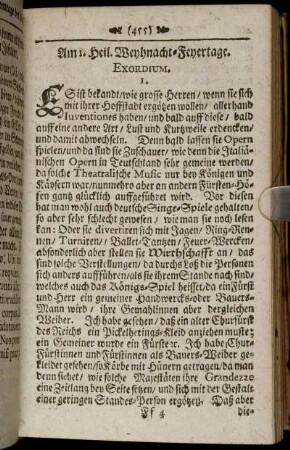 (455)
Am 1. Heil. Weyhnacht-Feyertage.
EXORDIUM.
1.
ES ist bekandt/ wie grosse Herren/ wenn sie sich
mit ihrer Hoffstadt ergötzen wollen/ allerhand
Iuventiones haben/ und bald auff diese/ bald
auff eine andere Art/ Lust und Kurtzweile erdencken/
und damit abwechseln. Denn bald lassen sie Opern
spielen/ und da sind sie Zuschauer/ wie denn die Italiä-
nischen Opern in Teutschland sehr gemeine werden/
da solche Theatralische Music nur bey Königen und
Käysern war/ nunmehro aber an andern Fürsten-Hö-
fen gantz glücklich auffgeführet wird. Vor diesen
hat man wohl auch deutsche Singe-Spiele gehalten/
so aber sehr schlecht gewesen/ wie man sie noch lesen
kan: Oder sie divertiren sich mit Jagen/ Ring-Ren-
nen/ Turniren/ Ballet-Tantzen/ Feuer-Wercken/
absonderlich aber stellen sie Wirthschafft an/ das
sind solche Verstellungen/ da durchs Loß die Personen
sich anders aufführen/ als sie ihrem Stande nach sind/
welches auch das Königs-Spiel heisset/ da ein Fürst
und Herr ein gemeiner Handwercks- oder Bauers-
Mann wird/ ihre Gemahlinnen aber dergleichen
Weiber. Ich habe gesehen/ daß ein alter Churfürst
des Reichs ein Pickelherings-Kleid anziehen muste/
ein Gemeiner wurde ein Fürste ꝛc. Ich habe Chur-
Fürstinnen und Fürstinnen als Bauers-Weiber ge-
kleidet gesehen/ so Körbe mit Hünern getragen/ da man
denn siehet/ wie solche Majestäten ihre Grandezze
eine Zeitlang bey Seite setzen/ und sich mit der Gestalt
einer geringen Standes-Person ergötzen. Daß aber
Ff 4 die-